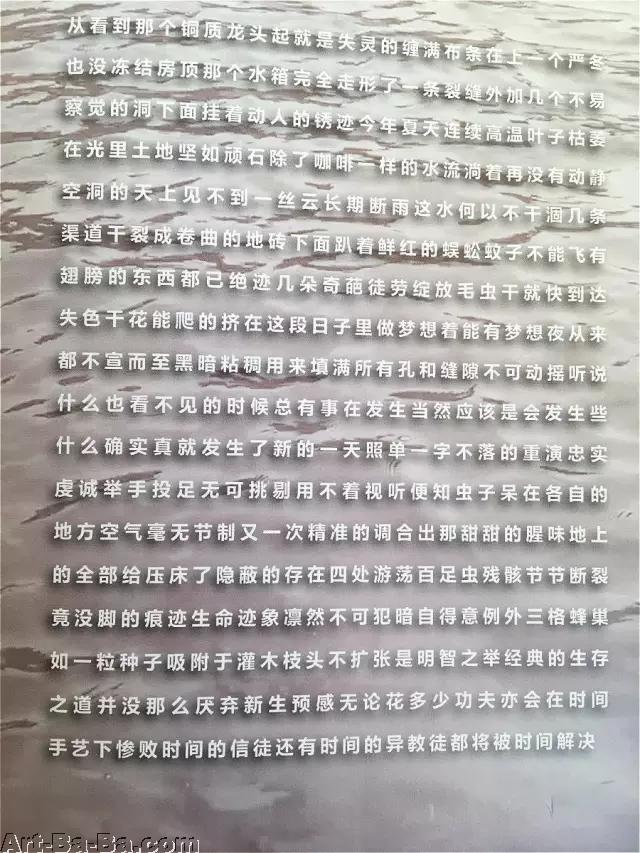 从看到那个铜质龙头起就是失灵的缠满布条在上一个严冬
也没冻结房顶那个水箱完全走形了一条裂缝外加几个不易
察觉的洞下面挂着动人的锈迹今年夏天连续高温叶子枯萎
在光里土地坚如顽石除了咖啡一样的水流淌着再没有动静
空洞的天上见不到一丝云长期断雨这水何以不干涸几条
渠道干裂成卷曲的地砖下面趴着鲜红的蜈蚣蚊子不能飞有
翅膀的东西都已绝迹几朵奇葩徒劳绽放毛虫干就快到达
失色干花能爬的挤在这段日子里做梦想着能有梦想夜从来
都不宣而至黑暗粘稠用来填满所有孔和缝隙不可动摇听说
什么也看不见的时候总有事在发生当然应该是会发生些
什么确实真就发生了新的一天照单一字不落的重演忠实
虔诚举手投足无可挑剔用不着视听便知虫子呆在各自的
地方空气毫无节制又一次精准的调合出那甜甜的腥味地上
的全部给压床了隐蔽的存在四处游荡百足虫残骸节节断裂
竟没脚的痕迹生命迹象凛然不可犯暗自得意例外三格蜂巢
如一粒种子吸附于灌木枝头不扩张是明智之举经典的生存
之道并没那么厌弃新生预感无论花多少功夫亦会在时间
手艺下惨败时间的信徒还有时间的异教徒都将被时间解决
Art-Ba-Ba.com